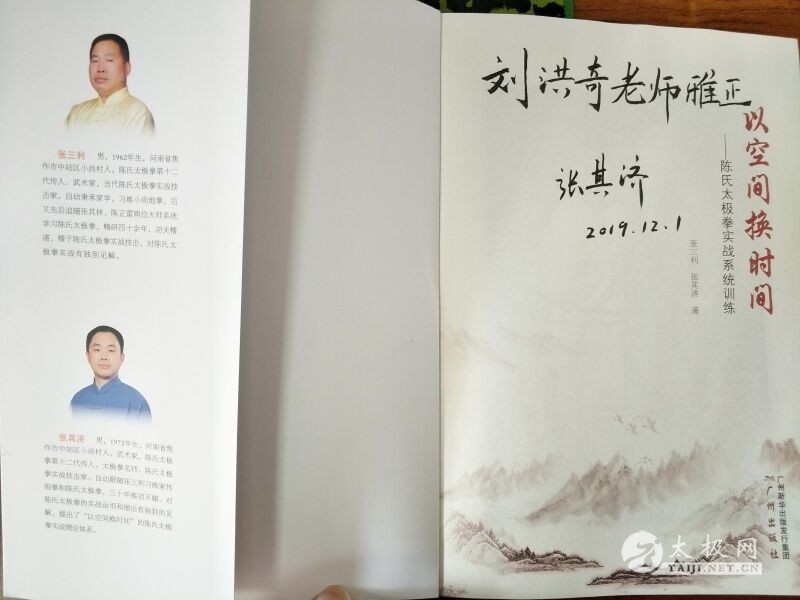 张三利 男，1962年生，河南省焦
作市中站区小尚村人。陈氏太极拳第十二
代传人，武术家，当代陈氏太极拳实战技
击家。自幼秉承家学，习练小尚炮拳，后
又先后追随张其林、陈正雷两位大师系统
学习陈氏太极拳，精研四十余年，功夫精
湛，精于陈氏太极拳实战技击，对陈氏太
极拳实战有独到见解。
张其济 男，1972年生，河南省焦
作市中站区小尚村人。武术家，陈氏太极
拳第十二代传人，太极拳名师，陈氏太极拳
实战技击家。自幼跟随张三利习练家传
炮拳和陈氏太极拳，三十年练功不辍，对
陈氏太极拳的实战运用和理论有独到的见
解，提出了“以空间换时间”的陈氏太极
拳实战理论体系。
刘洪奇老师雅正
张其济
2019.12.1
以空间换时间
——陈氏太极拳实战系统训练
张三利 张其济 著
广州新华出版发行集团
广州出版社
太极网
TAIJI.NET.CN